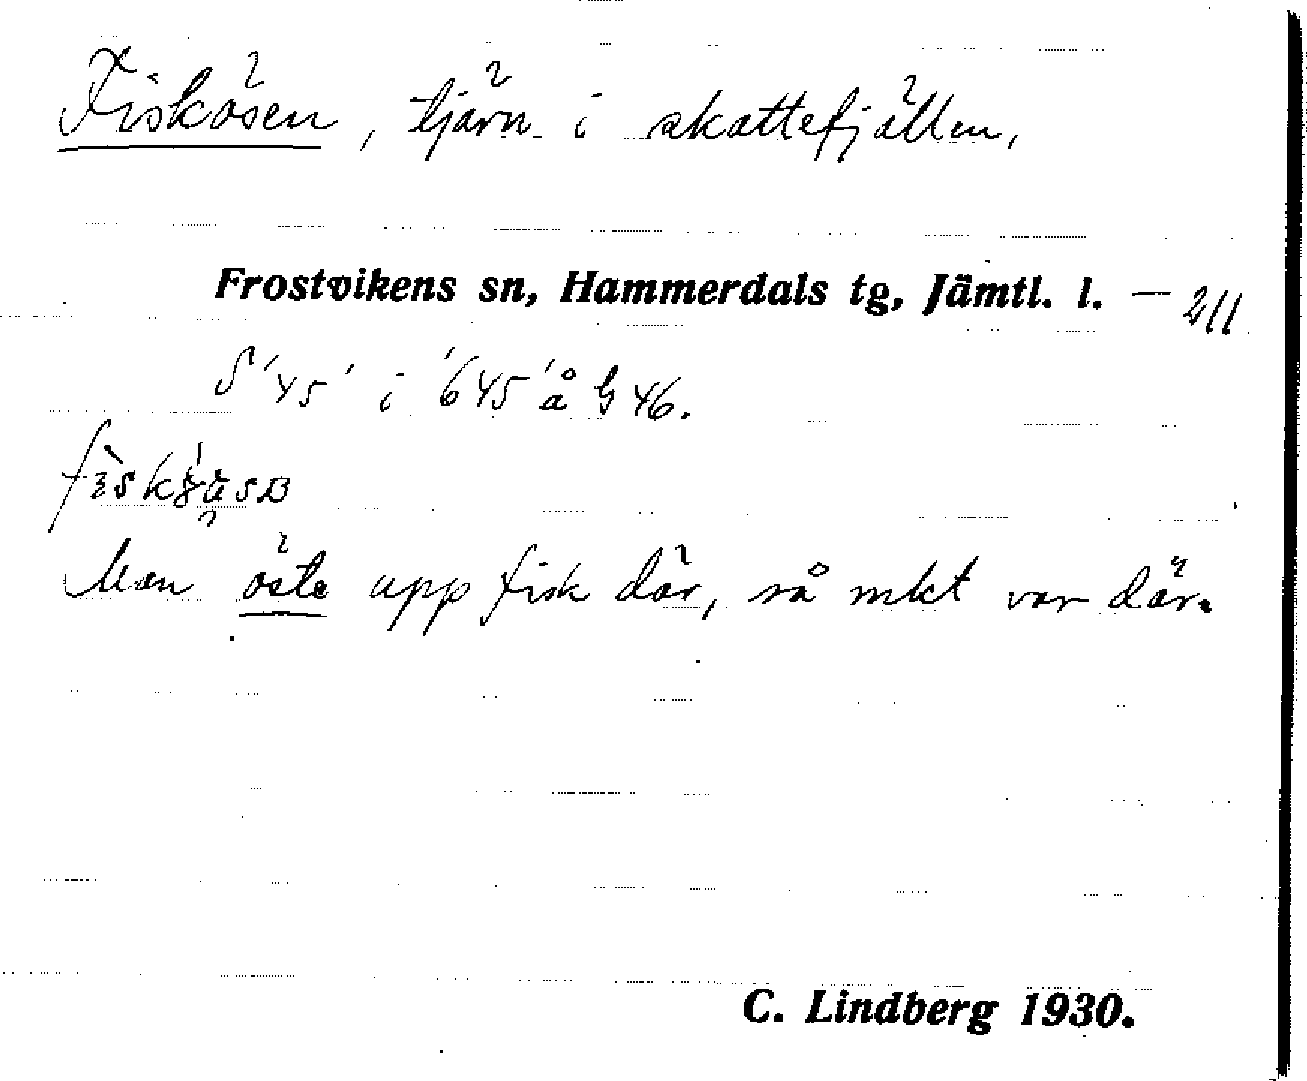 Fiskösen, tjärn i skattefjällen,
Frostvikens sn, Hammerdals tg, Jämtl. l. — 211
S '45' i '645' å G 46.
Man öste upp fisk där, så mkt var där.
C. Lindberg 1930.